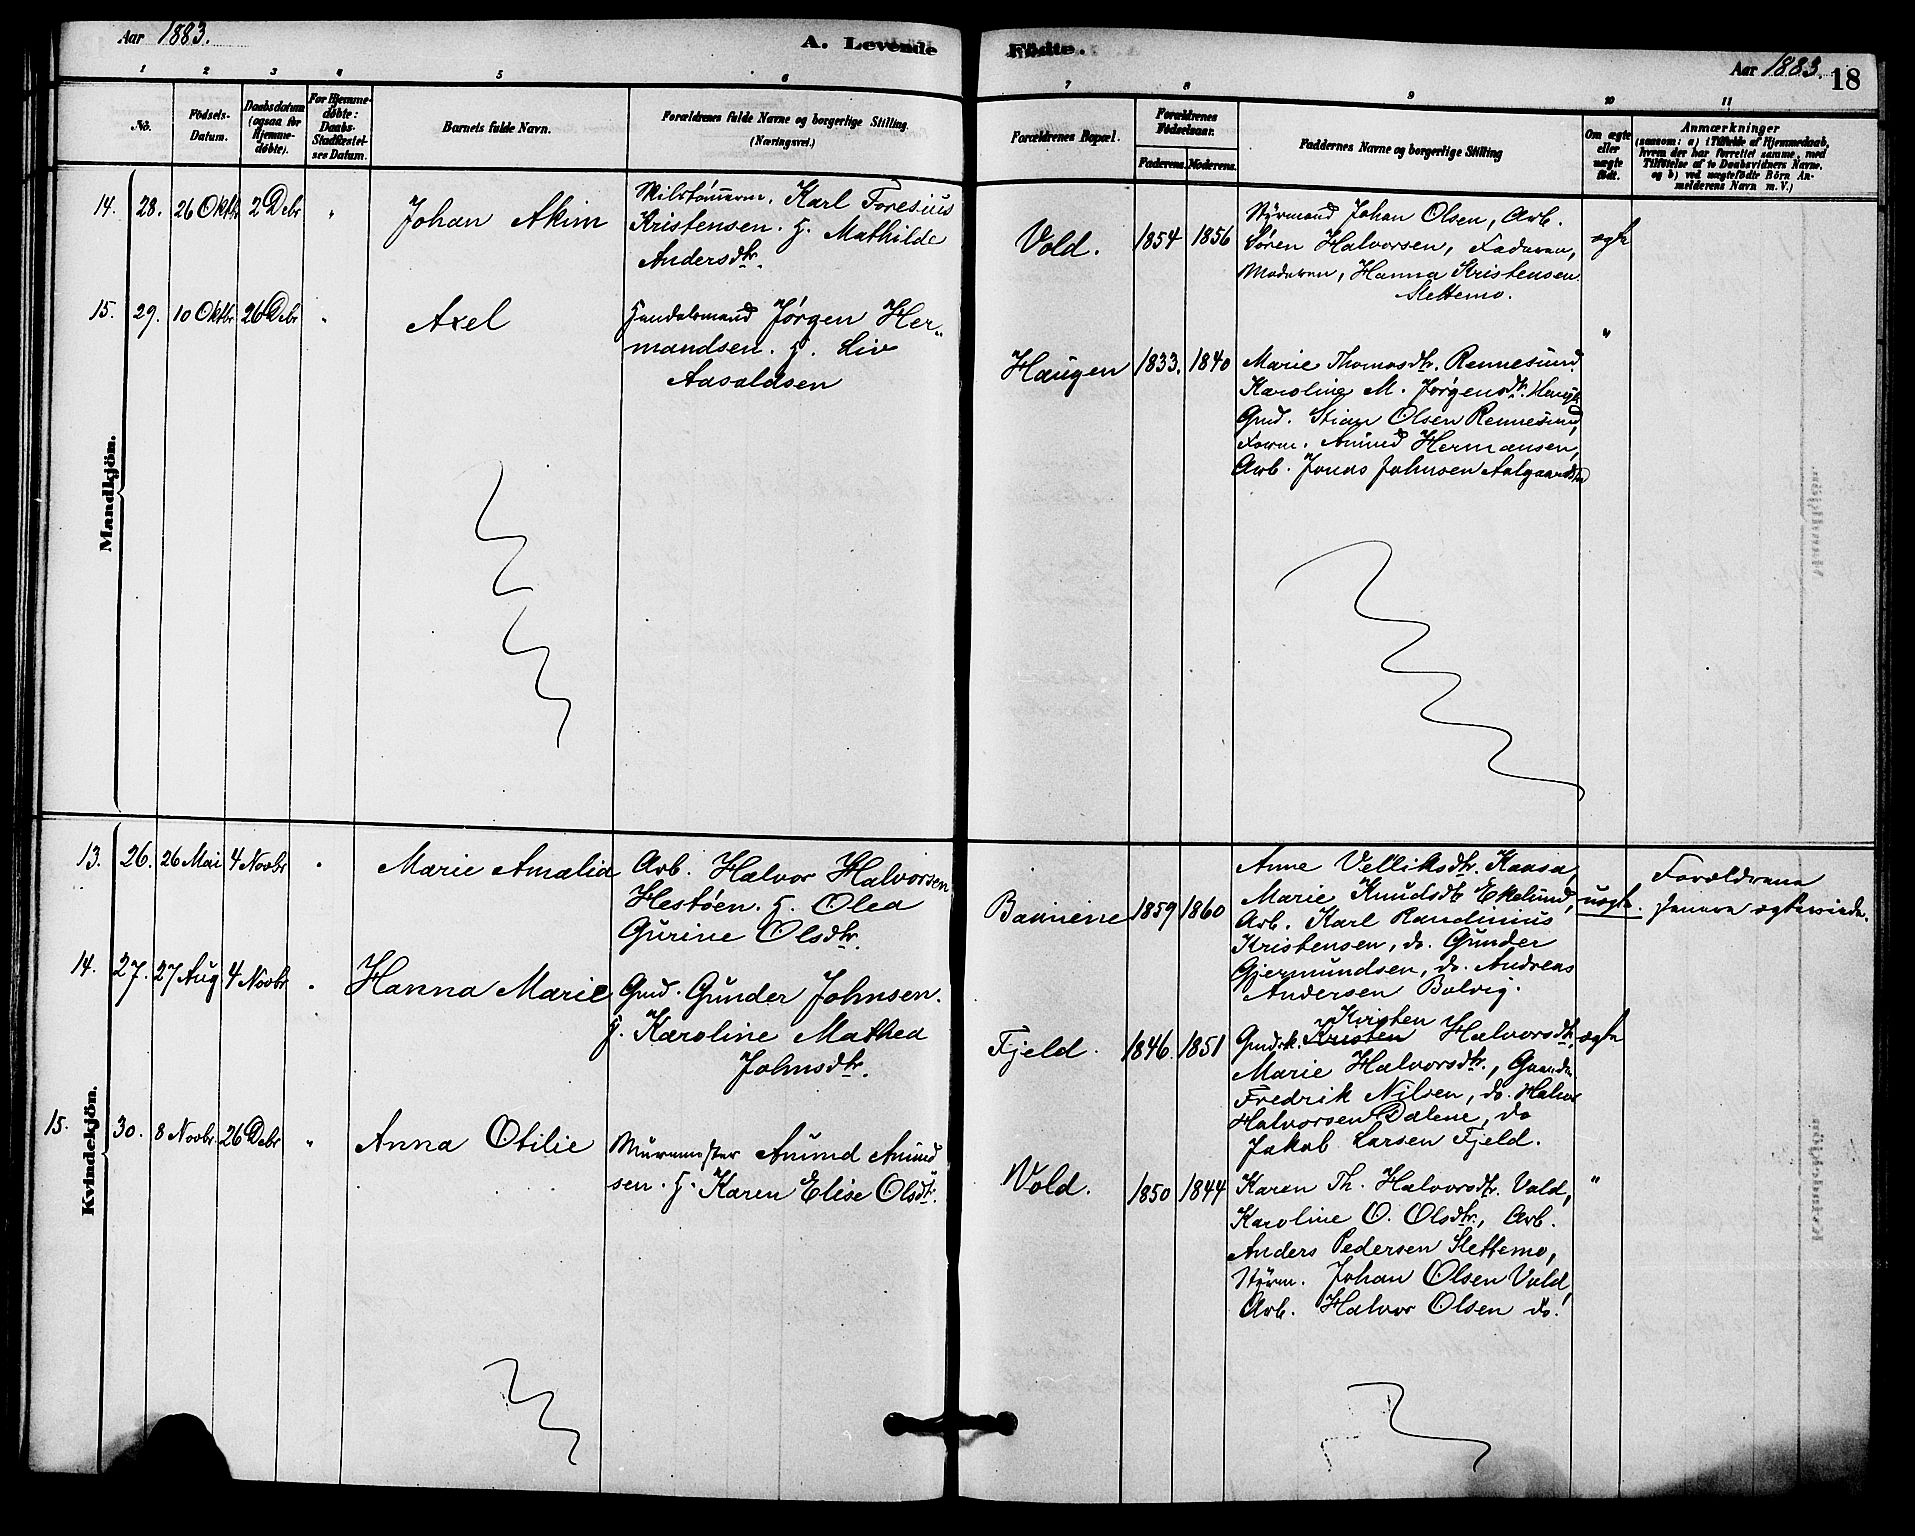 Aar 1883.
A. Levende
Födte.
Aar 1883.
18
1 2 3 4 5 6
7 8 9 10 11
No.
Födsels-
Datum.
Daabsdatum
(ogsaa for
Hjemme-
døbte).
For Hjemme-
døbte:
Daabs-
Stadfæstel-
ses Datum.
Barnets fulde Navn.
Forældrenes fulde Navne og borgerlige Stilling.
(Næringsvei.)
Forældrenes Bopæl.
Forældrenes
Födselsaar.
Faderens.
Moderens.
Faddernes Navne og borgerlige Stilling
Om ægte
eller
uægte
født.
Anmærkninger
(saasom: a) i Tilfælde af Hjemmedaab,
hvem der har forrettet samme, med
Tilføielse af to Daabsvidners Navne,
og b) ved uægtefødte Börn An-
melderens Navn m. V.)
Mandkjön.
14. 28. 26 Oktbr 2 Debr "
Johan Akim
Karl Foresius
Kristensen. H. Mathilde
Andersdtr.
Vold.
1854 1856
Styrmand Johan Olsen, Arb.
Søren Halvorsen, Faderen,
Moderen, Hanna Kristensen
Slettemo.
ægte
15. 29. 10 Oktbr 26 Debr "
Axel
Handelsmand Jørgen Her-
mandsen. H. Liv
Aasoldsen
Haugen
1833. 1840
Marie Thomasdtr. Rennesund.
Karoline M. Jørgensdtr.
Gmd. Stian Olsen Rennesund,
Anund Hermansen,
Arb. Jonas Johnsen
"
Kvindekjön.
13. 26. 26 Mai 4 Novbr "
Marie Amalia
Arb. Halvor Halvorsen
Hestøen. H. Olea
Gurine Olsdtr.
1859 1860
Anne Kaasa,
Marie Knudsdtr Ekelund,
Arb. Karl Randinius
Kristensen, do. Gunder
Gjermundsen, do. Andreas
Andersen Bolvig.
uægte.
Forældrene
senere ægteviede.
14. 27. 27 Aug 4 Novbr "
Hanna Marie
Gmd. Gunder Johnsen.
H. Karoline Mathea
Johnsdtr.
Fjeld.
1846. 1851
Kirsten
Gmdsk. Kristen Halvorsdtr.
Marie Halvorsdtr.,
Fredrik Nilsen, do. Halvor
Halvorsen Dalene, do
Jakob Larsen Fjeld.
ægte
15. 30. 8 Novbr 26 Debr "
Anna Otilie
Murmester Anund Anund
sen. H. Karen Elise Olsdtr.
Vold.
1850 1844
Karen Th. Halvorsdtr. Vold,
Karoline O. Olsdtr., Arb.
Anders Pedersen Slettemo,
Styrm. Johan Olsen Vold,
Arb. Halvor Olsen do.
"